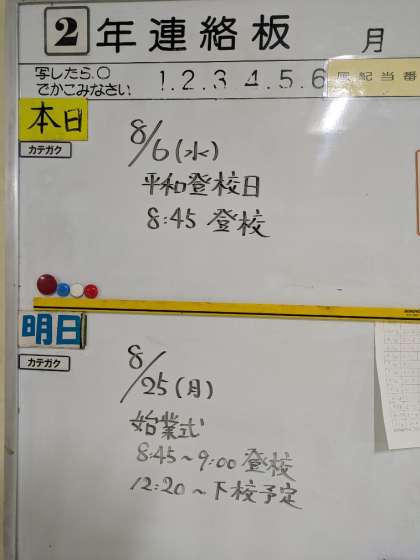 2年連絡板 月
写したら、○
でかこみなさい 1.2.3.4.5.6 風紀当番
本日
カテガク
8/6(水)
平和登校日
8:45 登校
明日
カテガク
8/25(月)
始業式
8:45～9:00 登校
12:20～下校予定